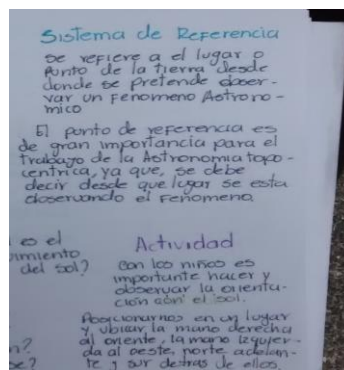 Sistema de Referencia
se refiere a el lugar o
Punto de la tierra desde
donde se pretende obser-
var un Fenomeno Astrono-
mico
El punto de referencia es
de gran importancia para el
trabajo de la Astronomia topo-
centrica, ya que, se debe
decir desde que lugar se esta
observando el Fenomeno.
es el
imiento
del sol?
Actividad
con los niños es
importante hacer y
observar la orienta-
ción con el sol.
Posicionarnos en un lugar
y ubicar la mano derecha
al oriente, la mano izquier-
da al oeste, norte adelan-
te y sur detras de ellos.